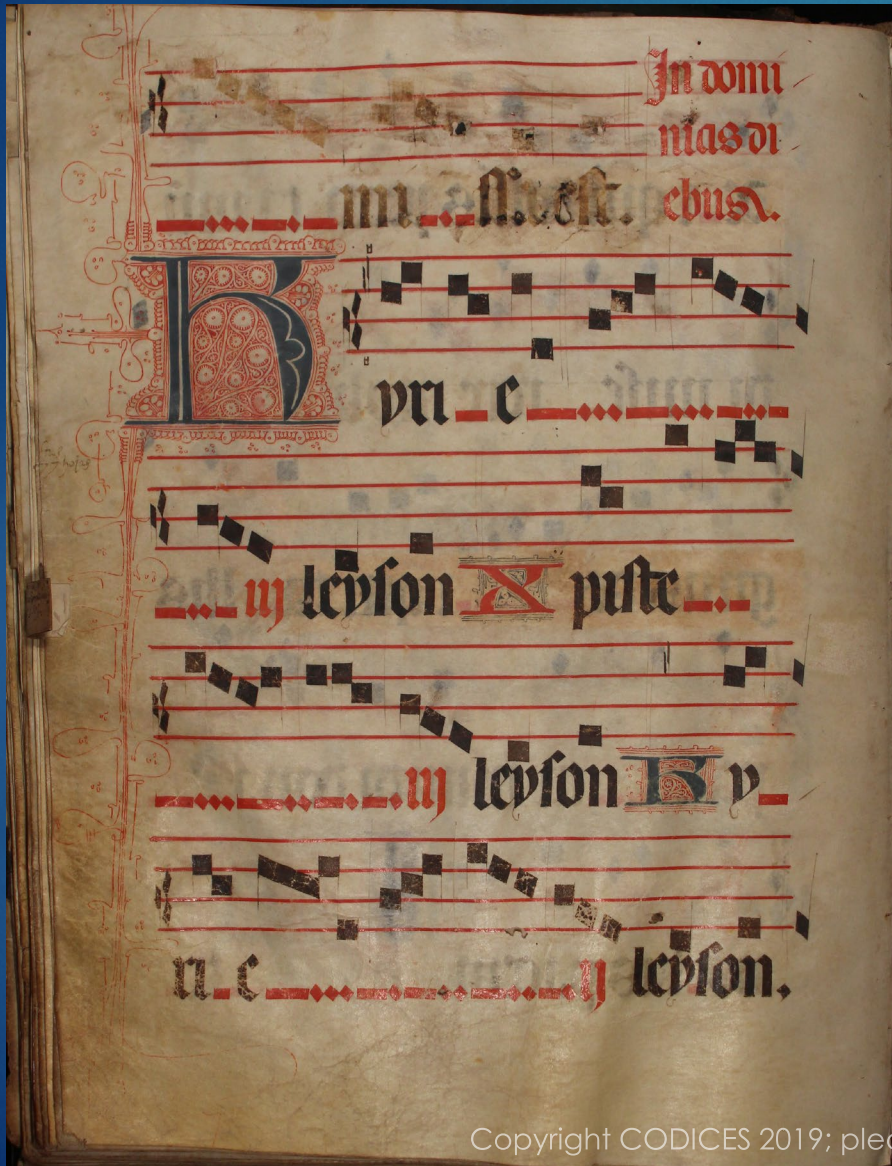 In domi
nicas di
mi ssa est. ebus.
Kyri e
iij leyson Xpiste
iij leyson Ky
ri e ij leyson.
Copyright CODICES 2019; plea